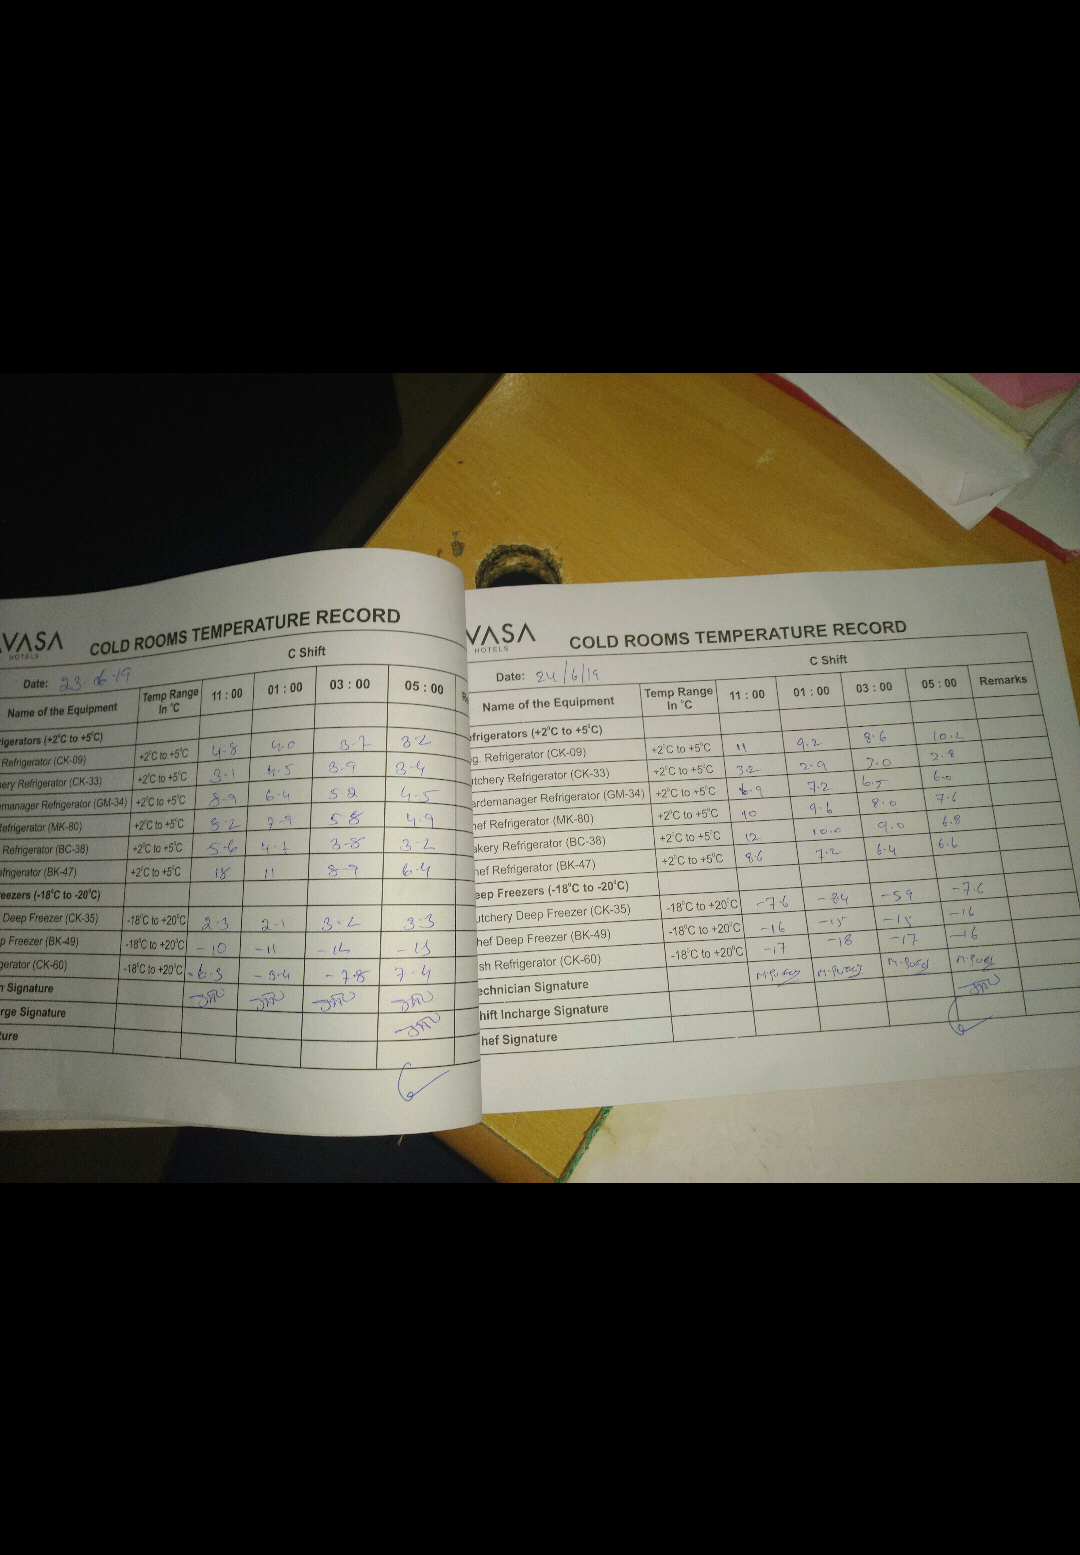 VASA
HOTELS
COLD ROOMS TEMPERATURE RECORD
C Shift
Date: 23.06.19
Name of the Equipment Temp Range In °C 11 : 00 01 : 00 03 : 00 05 : 00
igerators (+2°C to +5°C)
Refrigerator (CK-09) +2°C to +5°C 4.8 4.0 3.7 3.2
ery Refrigerator (CK-33) +2°C to +5°C 3.1 4.5 3.9 3.4
emanager Refrigerator (GM-34) +2°C to +5°C 8.9 6.4 5.2 4.5
efrigerator (MK-80) +2°C to +5°C 8.2 7.9 5.8 4.9
Refrigerator (BC-38) +2°C to +5°C 5.6 4.7 3.8 3.2
efrigerator (BK-47) +2°C to +5°C 18 11 8.7 6.4
eezers (-18°C to -20°C)
Deep Freezer (CK-35) -18°C to +20°C 2.3 2.1 3.2 3.3
p Freezer (BK-49) -18°C to +20°C -10 -11 -12 -13
gerator (CK-60) -18°C to +20°C -6.3 -3.4 -7.8 7.4
n Signature
rge Signature
ture
VASA
HOTELS
COLD ROOMS TEMPERATURE RECORD
C Shift
Date: 24/6/19
Name of the Equipment Temp Range In °C 11 : 00 01 : 00 03 : 00 05 : 00 Remarks
efrigerators (+2°C to +5°C)
g. Refrigerator (CK-09) +2°C to +5°C 11 9.2 8.6 10.2
utchery Refrigerator (CK-33) +2°C to +5°C 3.2 2.9 3.0 2.8
ardemanager Refrigerator (GM-34) +2°C to +5°C 6.9 7.2 6.5 6.0
hef Refrigerator (MK-80) +2°C to +5°C 10 9.6 8.0 7.6
akery Refrigerator (BC-38) +2°C to +5°C 12 10.0 9.0 6.8
hef Refrigerator (BK-47) +2°C to +5°C 8.6 7.2 6.4 6.6
eep Freezers (-18°C to -20°C)
utchery Deep Freezer (CK-35) -18°C to +20°C -7.6 -84 -59 -7.6
hef Deep Freezer (BK-49) -18°C to +20°C -16 -15 -15 -16
sh Refrigerator (CK-60) -18°C to +20°C -17 -18 -17 -16
echnician Signature
hift Incharge Signature
hef Signature